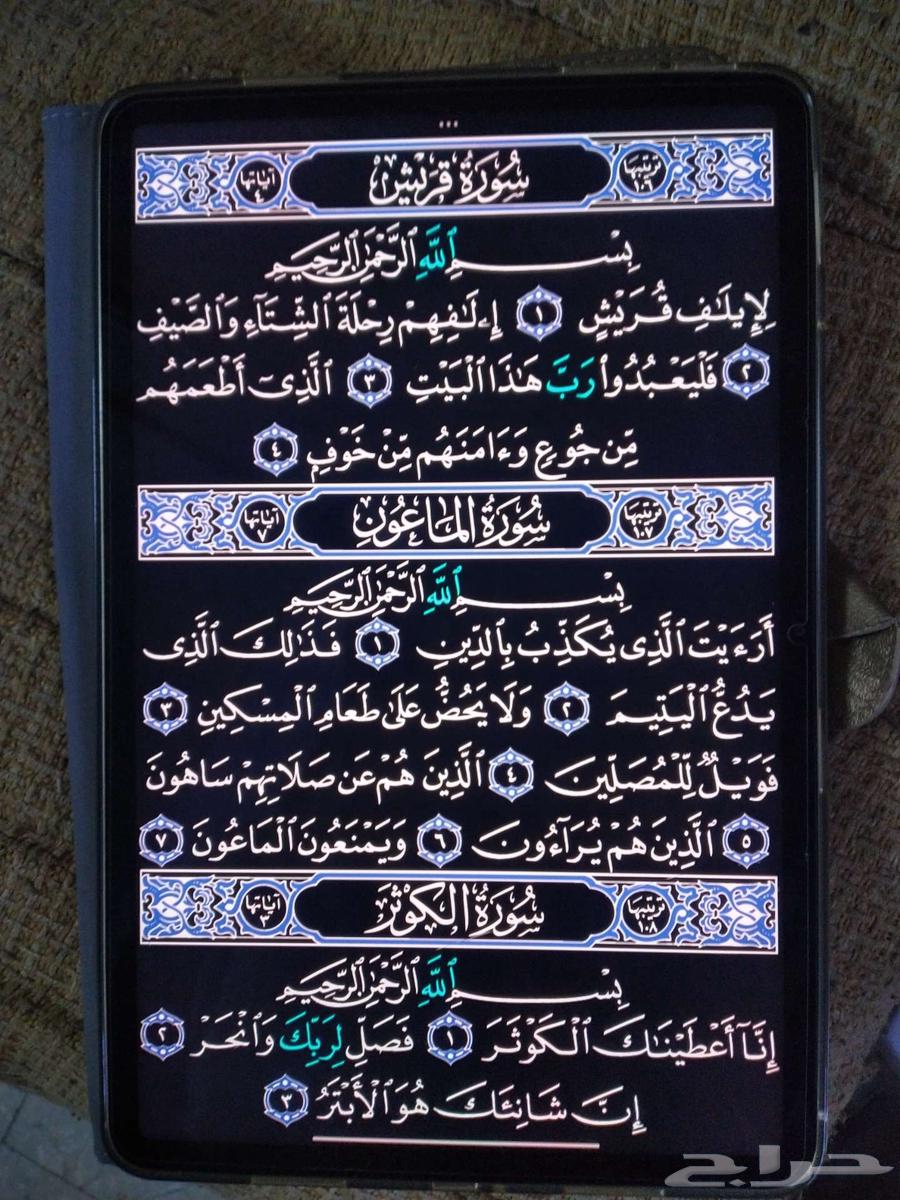 ترتيبها ١٠٦ سُورَةُ قُرَيْشٍ آياتها ٤
بِسْمِ ٱللَّهِ ٱلرَّحْمَٰنِ ٱلرَّحِيمِ
لِإِيلَٰفِ قُرَيْشٍ ١ إِۦلَٰفِهِمْ رِحْلَةَ ٱلشِّتَآءِ وَٱلصَّيْفِ
٢ فَلْيَعْبُدُوا۟ رَبَّ هَٰذَا ٱلْبَيْتِ ٣ ٱلَّذِىٓ أَطْعَمَهُم
مِّن جُوعٍ وَءَامَنَهُم مِّنْ خَوْفٍۭ ٤
ترتيبها ١٠٧ سُورَةُ المَاعُونِ آياتها ٧
بِسْمِ ٱللَّهِ ٱلرَّحْمَٰنِ ٱلرَّحِيمِ
أَرَءَيْتَ ٱلَّذِى يُكَذِّبُ بِٱلدِّينِ ١ فَذَٰلِكَ ٱلَّذِى
يَدُعُّ ٱلْيَتِيمَ ٢ وَلَا يَحُضُّ عَلَىٰ طَعَامِ ٱلْمِسْكِينِ ٣
فَوَيْلٌ لِّلْمُصَلِّينَ ٤ ٱلَّذِينَ هُمْ عَن صَلَاتِهِمْ سَاهُونَ
٥ ٱلَّذِينَ هُمْ يُرَآءُونَ ٦ وَيَمْنَعُونَ ٱلْمَاعُونَ ٧
ترتيبها ١٠٨ سُورَةُ الكَوْثَرِ آياتها ٣
بِسْمِ ٱللَّهِ ٱلرَّحْمَٰنِ ٱلرَّحِيمِ
إِنَّآ أَعْطَيْنَٰكَ ٱلْكَوْثَرَ ١ فَصَلِّ لِرَبِّكَ وَٱنْحَرْ ٢
إِنَّ شَانِئَكَ هُوَ ٱلْأَبْتَرُ ٣
حراج